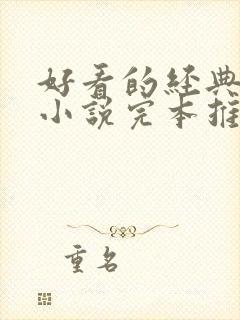 好看的经典
小说完本推
重名